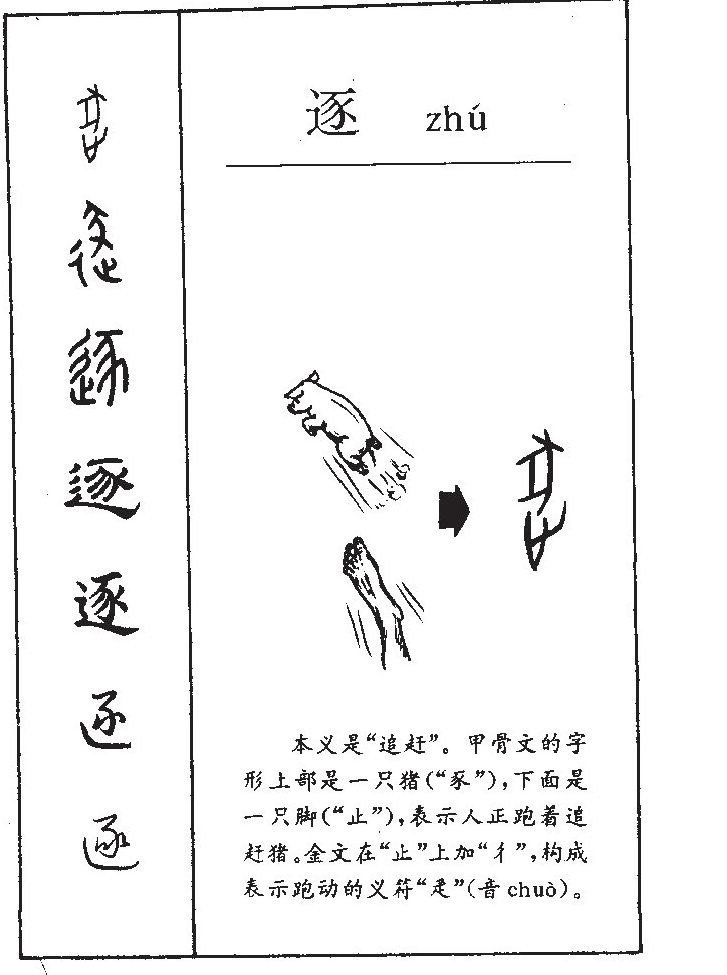 逐 zhú
本义是“追赶”。甲骨文的字
形上部是一只猪(“豕”),下面是
一只脚(“止”),表示人正跑着追
赶猪。金文在“止”上加“彳”,构成
表示跑动的义符“辵”(音chuò)。
逐
逐
逐
逐
逐